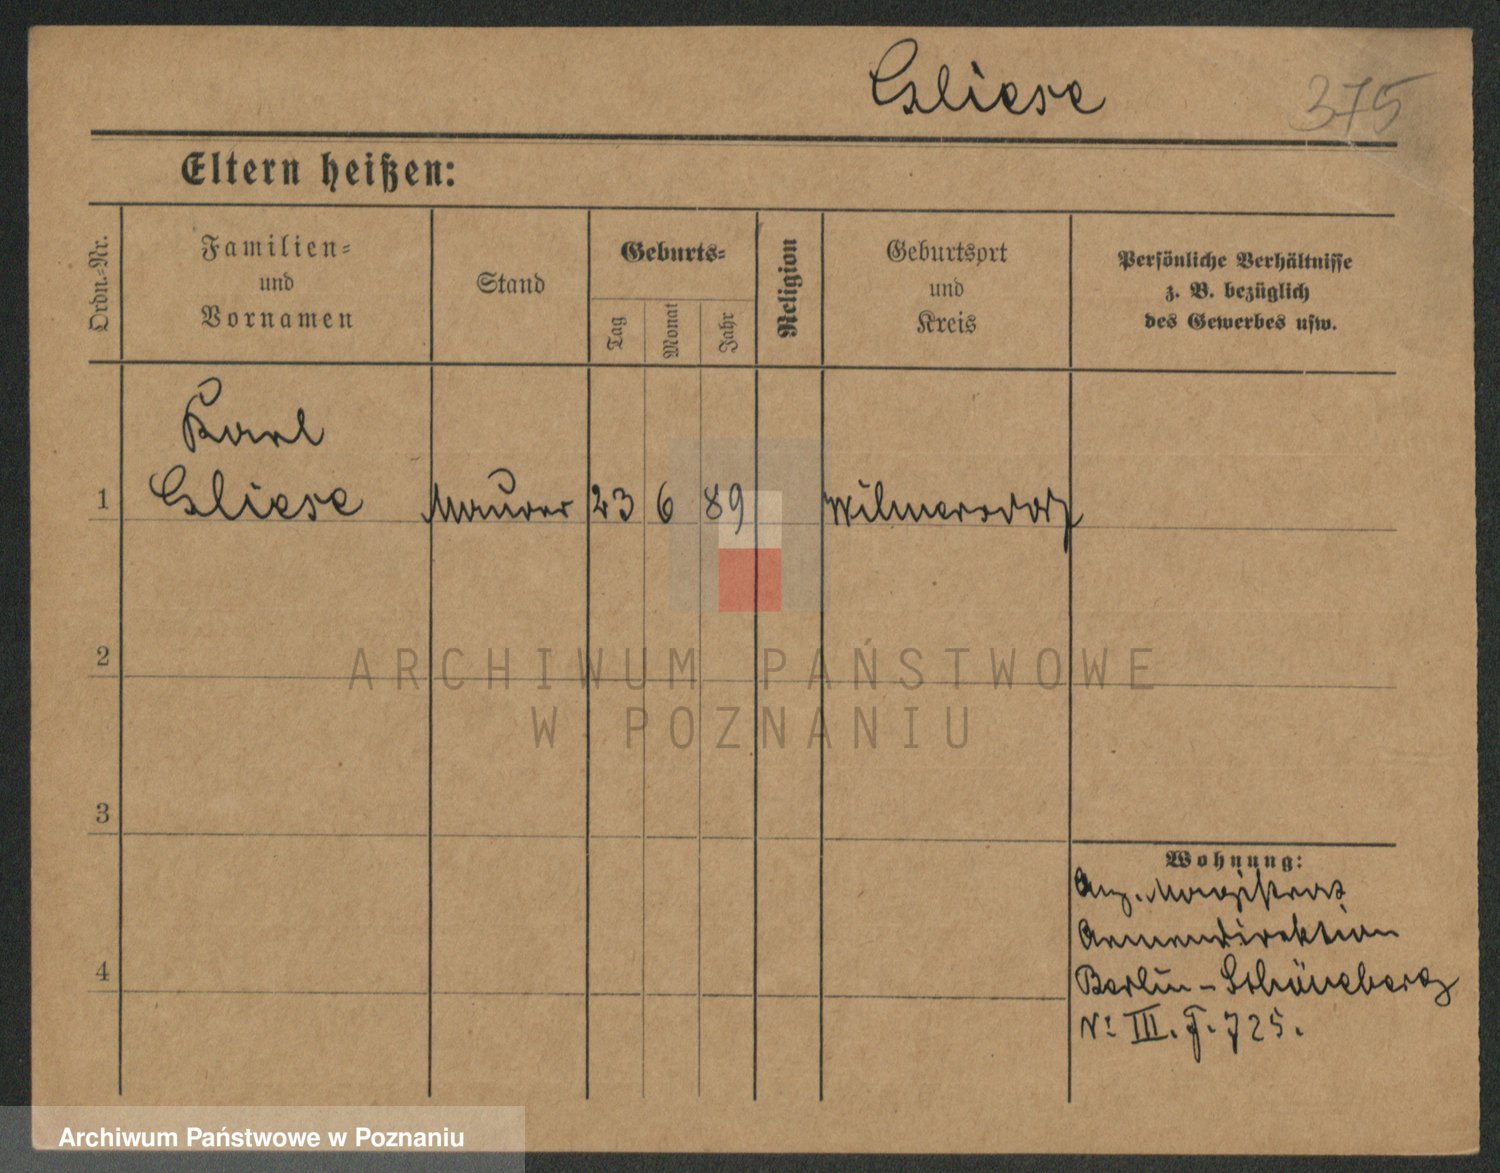 Gliese
375
Eltern heißen:
Ordn.-Nr.
Familien-
und
Vornamen
Stand
Geburts-
Tag
Monat
Jahr
Religion
Geburtsort
und
Kreis
Persönliche Verhältnisse
z. B. bezüglich
des Gewerbes usw.
Karl
1 Gliese Maurer 23 6 89 Wilmersdorf
2
ARCHIWUM PAŃSTWOWE
W POZNANIU
3
Wohnung:
Anz. Magistrat
Armendirektion
4
Berlin-Schöneberg
No III. J. 725.
Archiwum Państwowe w Poznaniu